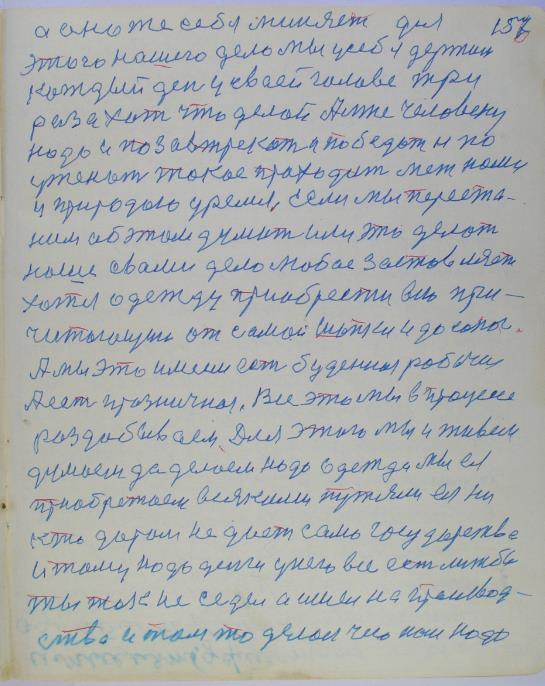 а оно же себя миняет для 157
этого нашего дело мы у себя держим
каждый ден у своей голове три
раза хоть что делой А тже человеку
надо и позавтрекат и победат и по
уженат такое праходит меж нами
и природаю уремя, если мы переста-
ним аб этом думат или это делат
наше с вами дело любое заставляет
хотя одежду приабрести ею при-
читающую от самой шапки и до сапог.
А мы это имеем ест буденная рабочия
А ест празничная. Все это мы в процессе
раздобываем. Для этого мы и живем
думаем да делаем надо одежда мы ея
приобретаем всякими путями ея ни
кто даром не дает само государство
и тому надо денги у него все ест лижбы
ты так не седел а шол на производ-
ство и там то делал чего нам надо